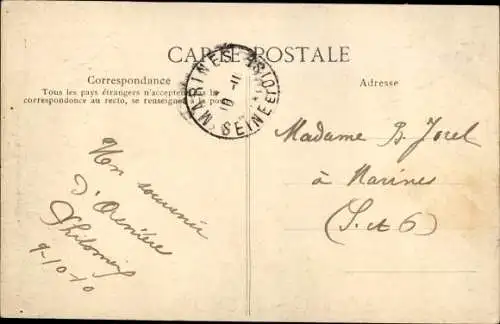 CARTE POSTALE
MARINES SEINE ET OISE
11
10
Correspondance
Tous les pays étrangers n'acceptent pas la
correspondance au recto, se renseigner à la poste
Adresse
Madame B. Jorel
à Marines
(S. et O)
Un souvenir
d'
9-10-10